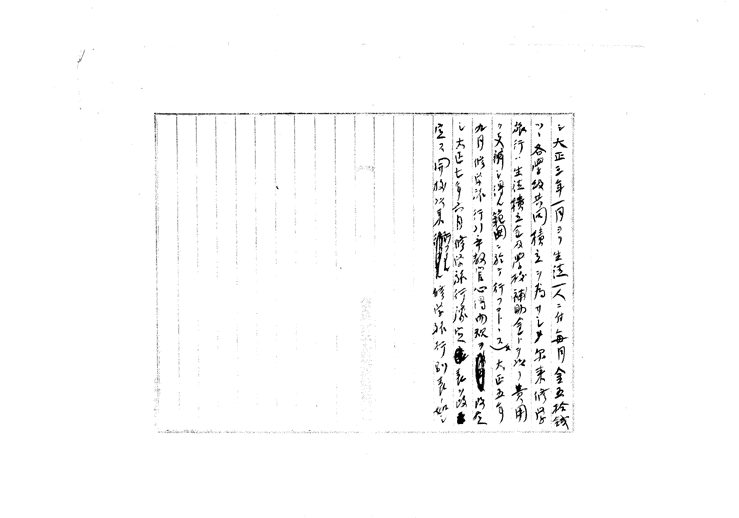 シ大正三年一月ヨリ生徒一人ニ付毎月金五拾銭
ツヽ各学級共同積立ヲ為サシメ尓来修学
旅行ハ生徒積立金及学校補助金トヲ以テ費用
ヲ支補シ得ル範囲ニ於テ行フコトヽス大正五年
九月修学旅行引率教官心得内規ヲ改定
シ大正七年六月修学旅行
定ス 修学旅行別表ノ如シ